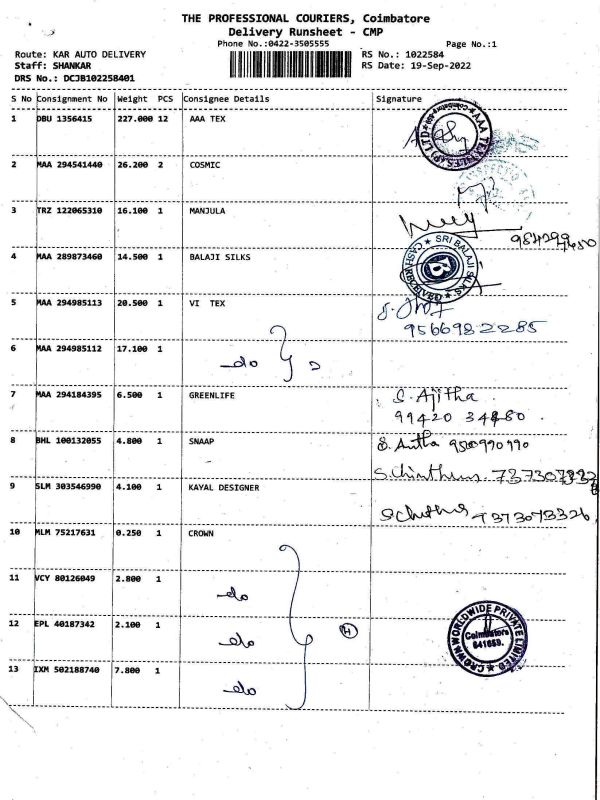 THE PROFESSIONAL COURIERS, Coimbatore
Delivery Runsheet - CMP
Phone No.:0422-3505555 Page No.:1
Route: KAR AUTO DELIVERY RS No.: 1022584
Staff: SHANKAR RS Date: 19-Sep-2022
DRS No.: DCJB102258401
S No Consignment No Weight PCS Consignee Details Signature
1 DBU 1356415 227.000 12 AAA TEX
AAA TEXTILES (P) LTD
2 MAA 294541440 26.200 2 COSMIC
3 TRZ 122065310 16.100 1 MANJULA
4 MAA 289873460 14.500 1 BALAJI SILKS
SRI BALAJI SILKS
5 MAA 294985113 20.500 1 VI TEX
9566982285
6 MAA 294985112 17.100 1 -do 2
7 MAA 294184395 6.500 1 GREENLIFE S. Ajitha
99420 34480.
8 BHL 100132055 4.800 1 SNAAP
9 SLM 303546990 4.100 1 KAYAL DESIGNER
7373073326
10 MLM 75217631 0.250 1 CROWN
11 VCY 80126049 2.800 1 -do
12 EPL 40187342 2.100 1 -do 4
CROWN WORLDWIDE PRIVATE LIMITED
Coimbatore
641659.
13 IXM 502188740 7.800 1 -do